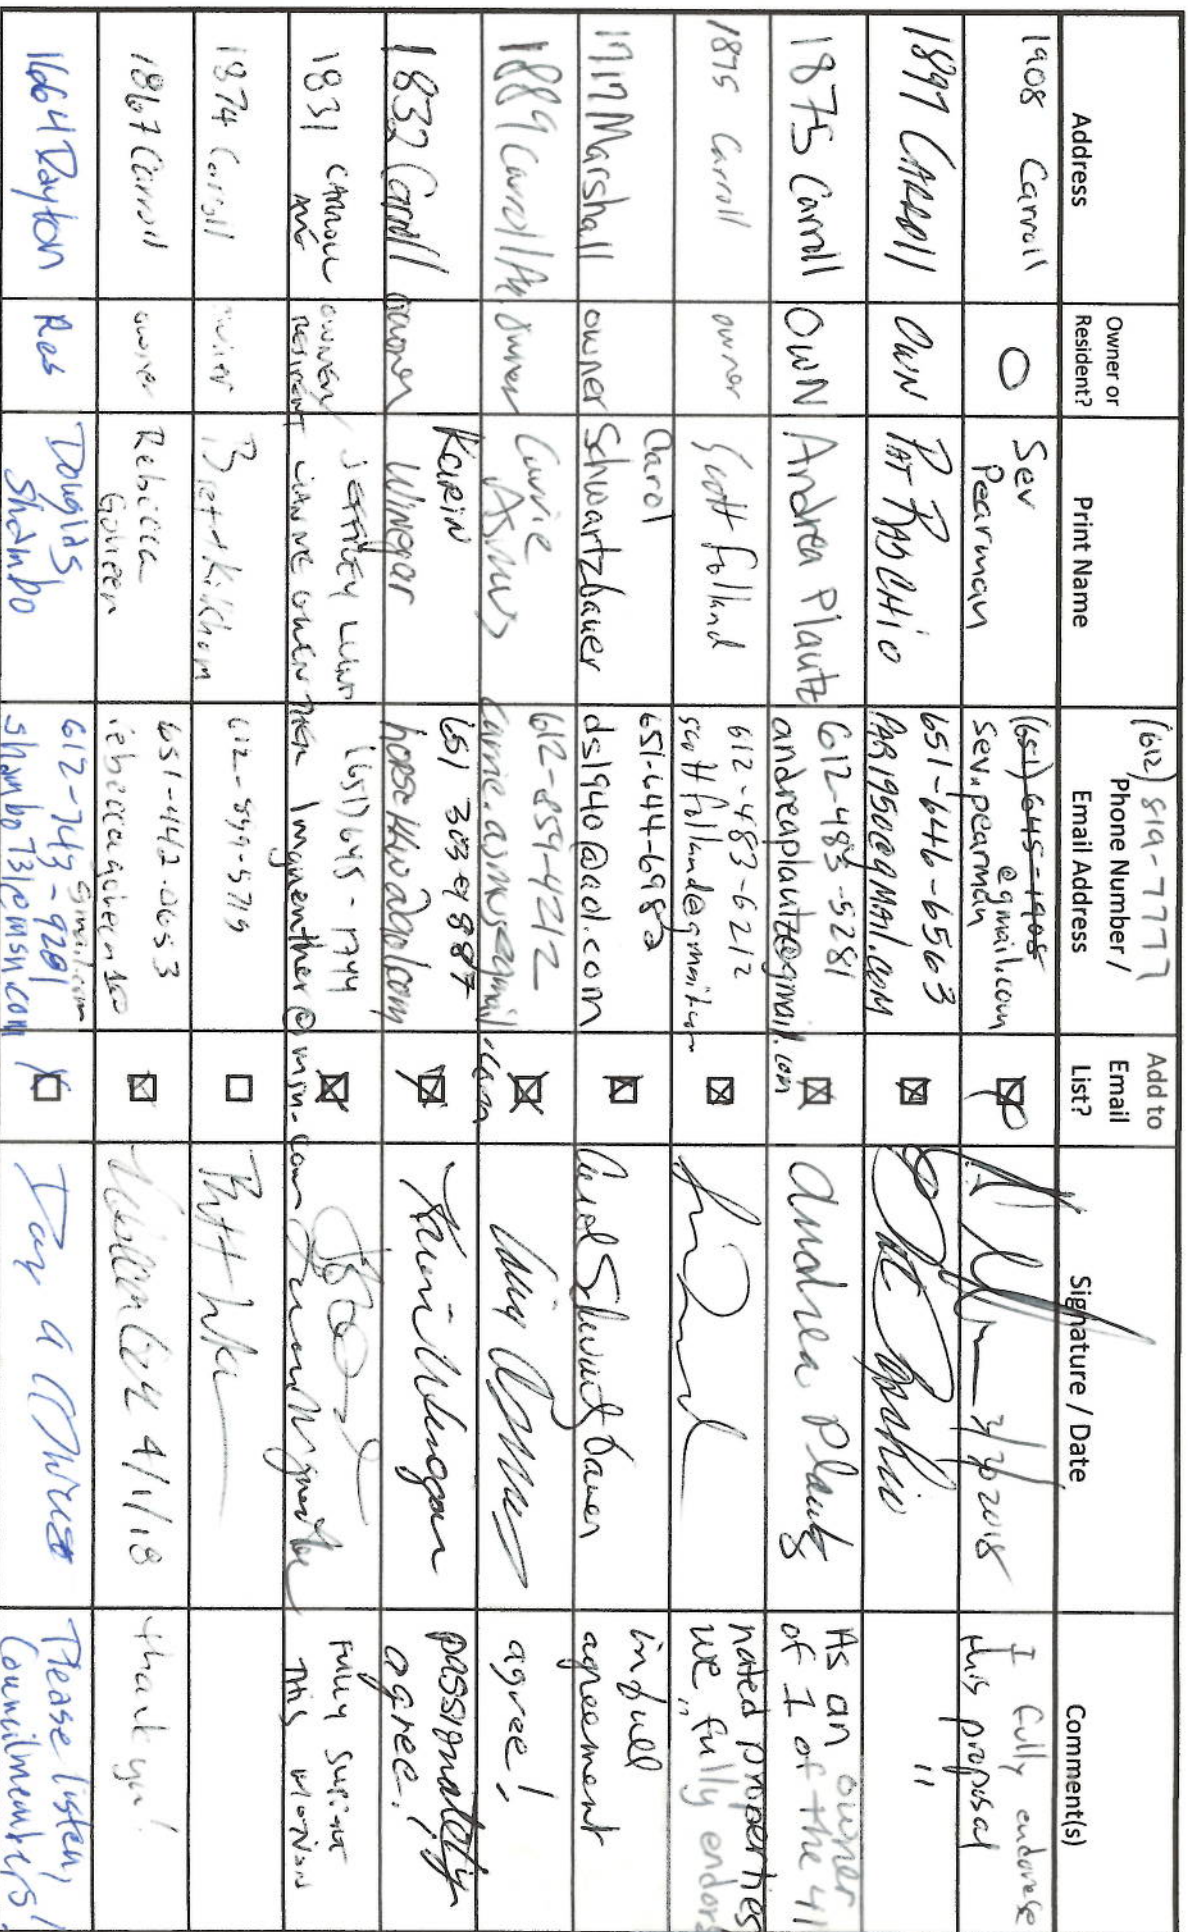 Address
Owner or
Resident?
Print Name
(612) 819-7777
Phone Number /
Email Address
Add to
Email
List?
Signature / Date
Comment(s)
1908 Carroll
O
Sev
Pearman
(651) 645-1905
@gmail.com
sev.pearman
3/2018
I fully endorse
this proposal
1897 CARROLL
OWN
PAT RADCHIO
651-646-6563
PAR1950@gMAIL.COM
"
1875 Carroll
OWN
Andrea Plautz
612-483-5281
andreaplautz@gmail.com
Andrea Plautz
As an owner
of 1 of the 41
1875 Carroll
owner
Scott Folland
612-483-6212
scottfolland@gmail.com
nated properties
we, fully endors
1717 Marshall
owner
Carol
Schwartzbauer
651-644-698
ds1940@aol.com
Carol Schwartzbauer
in full
agreement
1889 Carroll Av
owner
Carrie
Asmus
612-859-4212
carrie.asmus@gmail.com
agree!
1832 Carroll
owner
Karin
Winegar
651 303 4887
Karin Winegar
passionately
agree!
1831 CARROLL
AVE
OWNER/
RESIDENT
JEFFREY
(651) 645-1744
lmguenther@msn.com
FULLY SUPPORT
THIS MOTION
1874 Carroll
owner
612-599-5719
1867 Carroll
owner
Rebecca
651-442-0053
gmail.com
4/1/18
Thank you!
1664 Dayton
Res
Douglas
Shambo
612-743-9201
shambo73@msn.com
Please listen,
Councilmembers!